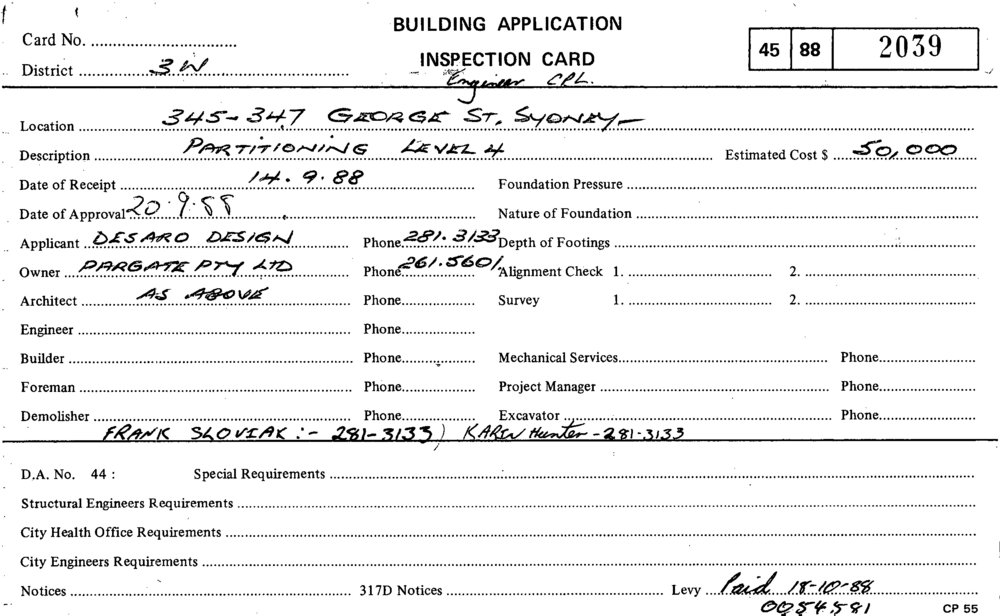 BUILDING APPLICATION
Card No. ....................................
45 88 2039
INSPECTION CARD
District ........ 3W ........
Engineer CPL.
Location ........ 345-347 GEORGE ST, SYDNEY ........
Description ........ PARTITIONING LEVEL 4 ........ Estimated Cost $ .... 50,000 ....
Date of Receipt ........ 14.9.88 ........ Foundation Pressure ........
Date of Approval 20.9.88 ........ Nature of Foundation ........
Applicant .. DESARO DESIGN ........ Phone 281.3133 Depth of Footings ........
Owner .... PARGATE PTY LTD ........ Phone 261.5601 Alignment Check 1. ........ 2. ........
Architect ........ AS ABOVE ........ Phone........ Survey 1. ........ 2. ........
Engineer ........ Phone........
Builder ........ Phone........ Mechanical Services........ Phone........
Foreman ........ Phone........ Project Manager ........ Phone........
Demolisher ........ Phone........ Excavator ........ Phone........
FRANK SLOVIAK :- 281-3133) KAREN Hunter - 281-3133
D.A. No. 44 : Special Requirements ........
Structural Engineers Requirements ........
City Health Office Requirements ........
City Engineers Requirements ........
Notices ........ 317D Notices ........ Levy .... Paid 18-10-88
0054581 CP 55